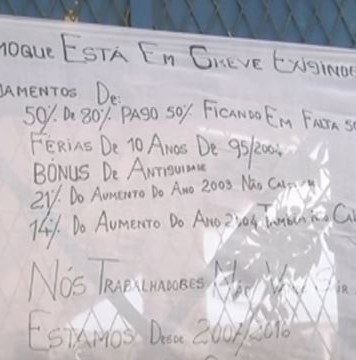 MOQUE ESTÁ EM GREVE EXIGINDO
DAMENTOS DE:
50% DE 80% PAGO 50% FICANDO EM FALTA 50
FÉRIAS DE 10 ANOS DE 95/2004
BÓNUS DE ANTIGUIDADE
21% DO AUMENTO DO ANO 2003 NÃO
14% DO AUMENTO DO ANO 2004 TAMBÉM NÃO CA
NÓS TRABALHADORES NÃO
ESTAMOS DESDE 2007/2016